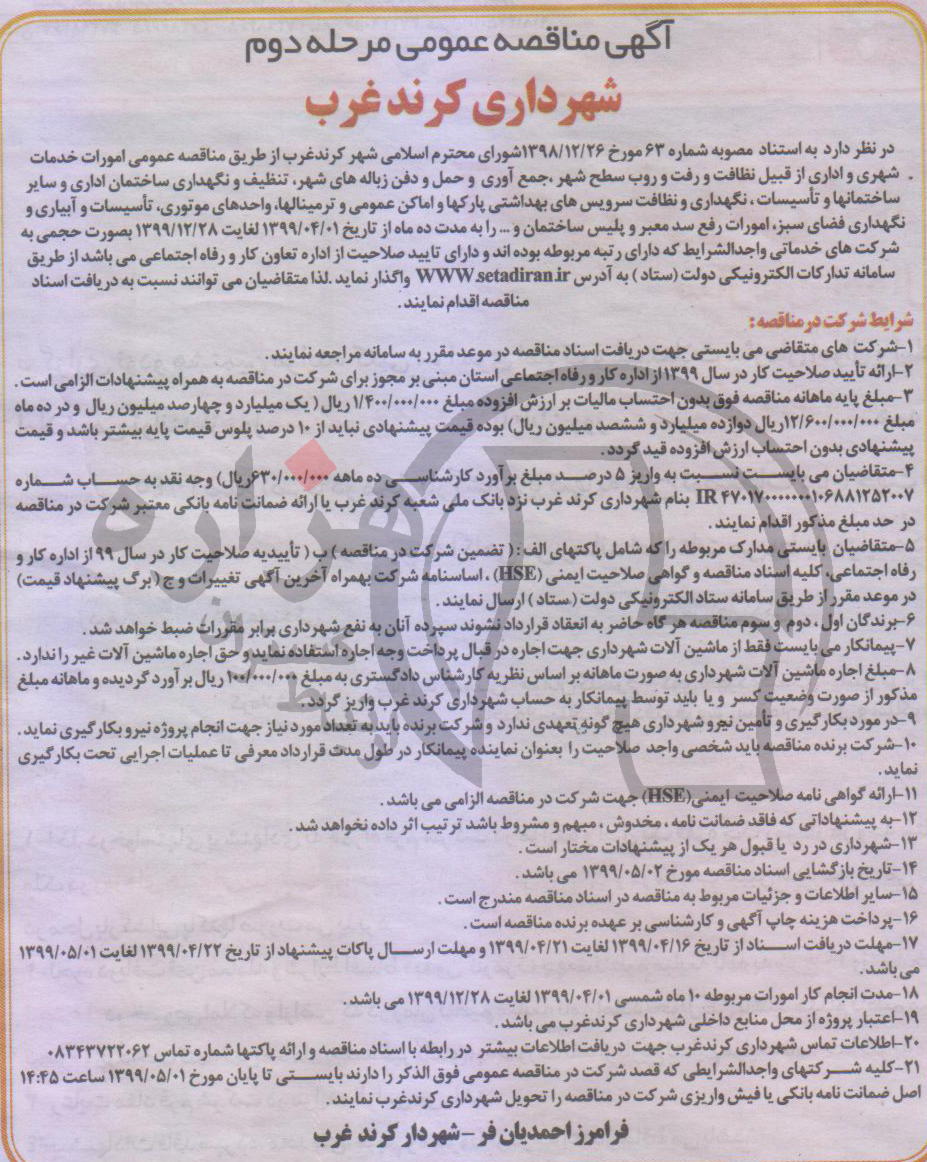 آگهی مناقصه عمومی مرحله دوم
شهرداری کرند غرب
در نظر دارد به استناد مصوبه شماره ۶۳ مورخ ۱۳۹۸/۱۲/۲۶شورای محترم اسلامی شهر کرندغرب از طریق مناقصه عمومی امورات خدمات
شهری و اداری از قبیل نظافت و رفت و روب سطح شهر ،جمع آوری و حمل و دفن زباله های شهر، تنظیف و نگهداری ساختمان اداری و سایر
ساختمانها و تأسیسات ، نگهداری و نظافت سرویس های بهداشتی پارکها و اماکن عمومی و ترمینالها، واحدهای موتوری، تأسیسات و آبیاری و
نگهداری فضای سبز، امورات رفع سد معبر و پلیس ساختمان و ... را به مدت ده ماه از تاریخ ۱۳۹۹/۰۴/۰۱ لغایت ۱۳۹۹/۱۲/۲۸ بصورت حجمی به
شرکت های خدماتی واجدالشرایط که دارای رتبه مربوطه بوده اند و دارای تایید صلاحیت از اداره تعاون کار و رفاه اجتماعی می باشد از طریق
سامانه تدارکات الکترونیکی دولت (ستاد ) به آدرس WWW.setadiran.ir واگذار نماید .لذا متقاضیان می توانند نسبت به دریافت اسناد
مناقصه اقدام نمایند .
شرایط شرکت در مناقصه :
۱-شرکت های متقاضی می بایستی جهت دریافت اسناد مناقصه در موعد مقرر به سامانه مراجعه نمایند .
۲-ارائه تأیید صلاحیت کار در سال ۱۳۹۹ از اداره کار و رفاه اجتماعی استان مبنی بر مجوز برای شرکت در مناقصه به همراه پیشنهادات الزامی است .
۳-مبلغ پایه ماهانه مناقصه فوق بدون احتساب مالیات بر ارزش افزوده مبلغ ۱/۴۰۰/۰۰۰/۰۰۰ ریال ( یک میلیارد و چهارصد میلیون ریال و در ده ماه
مبلغ ۱۲/۶۰۰/۰۰۰/۰۰۰ریال دوازده میلیارد و ششصد میلیون ریال) بوده قیمت پیشنهادی نباید از ۱۰ درصد پلوس قیمت پایه بیشتر باشد و قیمت
پیشنهادی بدون احتساب ارزش افزوده قید گردد .
۴-متقاضیان می بایست نسبت به واریز ۵ درصد مبلغ برآورد کارشناسی ده ماهه ۶۳۰/۰۰۰/۰۰۰ریال) وجه نقد به حساب شماره
IR ۴۷۰۱۷۰۰۰۰۰۰۰۱۰۶۸۸۱۲۵۲۰۰۷ بنام شهرداری کرند غرب نزد بانک ملی شعبه کرند غرب یا ارائه ضمانت نامه بانکی معتبر شرکت در مناقصه
در حد مبلغ مذکور اقدام نمایند .
۵-متقاضیان بایستی مدارک مربوطه را که شامل پاکتهای الف: ( تضمین شرکت در مناقصه ) ب ( تأییدیه صلاحیت کار در سال ۹۹ از اداره کار و
رفاه اجتماعی، کلیه اسناد مناقصه و گواهی صلاحیت ایمنی (HSE) ، اساسنامه شرکت بهمراه آخرین آگهی تغییرات و ج (برگ پیشنهاد قیمت)
در موعد مقرر از طریق سامانه ستاد الکترونیکی دولت (ستاد ) ارسال نمایند .
۶-برندگان اول ، دوم و سوم مناقصه هر گاه حاضر به انعقاد قرارداد نشوند سپرده آنان به نفع شهرداری برابر مقررات ضبط خواهد شد .
۷-پیمانکار می بایست فقط از ماشین آلات شهرداری جهت اجاره در قبال پرداخت وجه اجاره استفاده نماید و حق اجاره ماشین آلات غیر را ندارد .
۸-مبلغ اجاره ماشین آلات شهرداری به صورت ماهانه بر اساس نظریه کارشناس دادگستری به مبلغ ۱۰۰/۰۰۰/۰۰۰ ریال برآورد گردیده و ماهانه مبلغ
مذکور از صورت وضعیت کسر و یا باید توسط پیمانکار به حساب شهرداری کرند غرب واریز گردد .
۹-در مورد بکارگیری و تأمین نیرو شهرداری هیچ گونه تعهدی ندارد و شرکت برنده باید به تعداد مورد نیاز جهت انجام پروژه نیرو بکارگیری نماید .
۱۰-شرکت برنده مناقصه باید شخصی واجد صلاحیت را بعنوان نماینده پیمانکار در طول مدت قرارداد معرفی تا عملیات اجرایی تحت بکارگیری
نماید .
۱۱-ارائه گواهی نامه صلاحیت ایمنی(HSE) جهت شرکت در مناقصه الزامی می باشد .
۱۲-به پیشنهاداتی که فاقد ضمانت نامه ، مخدوش ، مبهم و مشروط باشد ترتیب اثر داده نخواهد شد .
۱۳-شهرداری در رد یا قبول هر یک از پیشنهادات مختار است .
۱۴-تاریخ بازگشایی اسناد مناقصه مورخ ۱۳۹۹/۰۵/۰۲ می باشد .
۱۵-سایر اطلاعات و جزئیات مربوط به مناقصه در اسناد مناقصه مندرج است .
۱۶-پرداخت هزینه چاپ آگهی و کارشناسی بر عهده برنده مناقصه است .
۱۷-مهلت دریافت اسناد از تاریخ ۱۳۹۹/۰۴/۱۶ لغایت ۱۳۹۹/۰۴/۲۱ و مهلت ارسال پاکات پیشنهاد از تاریخ ۱۳۹۹/۰۴/۲۲ لغایت ۱۳۹۹/۰۵/۰۱
می باشد .
۱۸-مدت انجام کار امورات مربوطه ۱۰ ماه شمسی ۱۳۹۹/۰۴/۰۱ لغایت ۱۳۹۹/۱۲/۲۸ می باشد .
۱۹-اعتبار پروژه از محل منابع داخلی شهرداری کرندغرب می باشد .
۲۰-اطلاعات تماس شهرداری کرندغرب جهت دریافت اطلاعات بیشتر در رابطه با اسناد مناقصه و ارائه پاکتها شماره تماس ۰۸۳۴۳۷۲۲۰۶۲
۲۱-کلیه شرکتهای واجدالشرایطی که قصد شرکت در مناقصه عمومی فوق الذکر را دارند بایستی تا پایان مورخ ۱۳۹۹/۰۵/۰۱ ساعت ۱۴:۴۵
اصل ضمانت نامه بانکی یا فیش واریزی شرکت در مناقصه را تحویل شهرداری کرندغرب نمایند .
فرامرز احمدیان فر – شهردار کرند غرب
هزاره